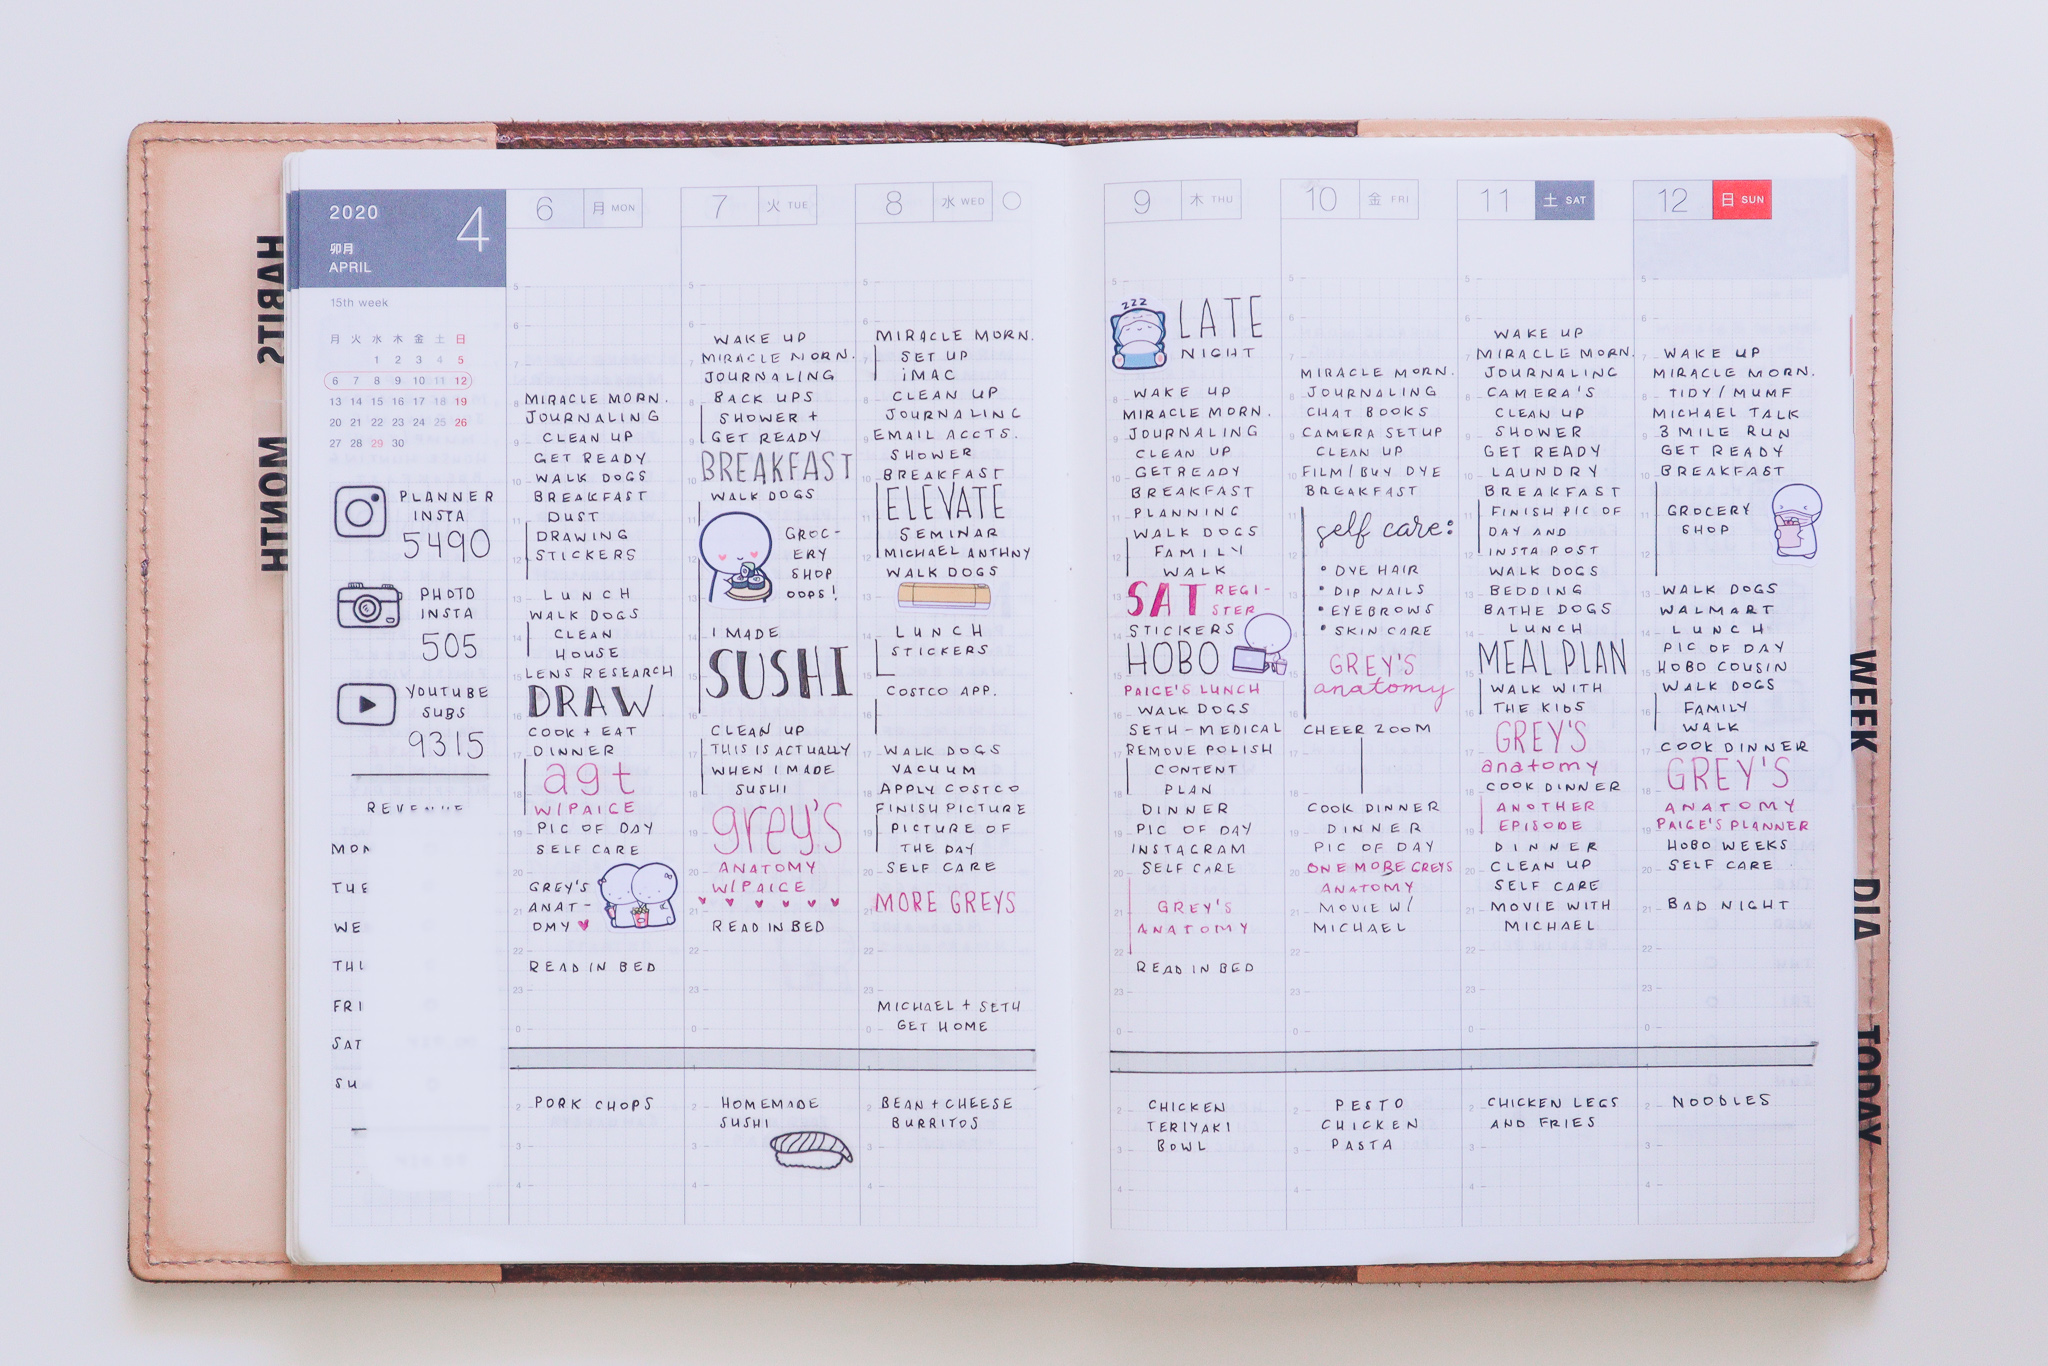 2020
4
卯月
APRIL
15th week
月 火 水 木 金 土 日
1 2 3 4 5
6 7 8 9 10 11 12
13 14 15 16 17 18 19
20 21 22 23 24 25 26
27 28 29 30
PLANNER
INSTA
5490
PHOTO
INSTA
505
YOUTUBE
SUBS
9315
MON
TUE
WE
FRI
SAT
SU
6 月 MON
MIRACLE MORN.
JOURNALING
CLEAN UP
GET READY
WALK DOGS
BREAKFAST
DUST
DRAWING
STICKERS
LUNCH
WALK DOGS
CLEAN
HOUSE
LENS RESEARCH
DRAW
COOK + EAT
DINNER
agt
W/PAICE
PIC OF DAY
SELF CARE
GREY'S
ANAT-
OMY
READ IN BED
PORK CHOPS
7 火 TUE
WAKE UP
MIRACLE MORN.
JOURNALING
BACK UPS
SHOWER +
GET READY
BREAKFAST
WALK DOGS
GROC-
ERY
SHOP
OOPS!
I MADE
SUSHI
CLEAN UP
THIS IS ACTUALLY
WHEN I MADE
SUSHI
grey's
ANATOMY
W/PAICE
READ IN BED
HOMEMADE
SUSHI
8 水 WED
MIRACLE MORN.
SET UP
iMAC
CLEAN UP
JOURNALING
EMAIL ACCTS.
SHOWER
BREAKFAST
ELEVATE
SEMINAR
MICHAEL ANTHNY
WALK DOGS
LUNCH
STICKERS
COSTCO APP.
WALK DOGS
VACUUM
APPLY COSTCO
FINISH PICTURE
PICTURE OF
THE DAY
SELF CARE
MORE GREYS
MICHAEL + SETH
GET HOME
BEAN + CHEESE
BURRITOS
9 木 THU
ZZZ
LATE
NIGHT
WAKE UP
MIRACLE MORN.
JOURNALING
CLEAN UP
GET READY
BREAKFAST
PLANNING
WALK DOGS
FAMILY
WALK
SAT REGI-
STER
STICKERS
HOBO
PAIGE'S LUNCH
WALK DOGS
SETH - MEDICAL
REMOVE POLISH
CONTENT
PLAN
DINNER
PIC OF DAY
INSTAGRAM
SELF CARE
GREY'S
ANATOMY
READ IN BED
CHICKEN
TERIYAKI
BOWL
10 金 FRI
MIRACLE MORN.
JOURNALING
CHAT BOOKS
CAMERA SETUP
CLEAN UP
FILM/BUY DYE
BREAKFAST
self care:
• DYE HAIR
• DIP NAILS
• EYEBROWS
• SKIN CARE
GREY'S
anatomy
CHEER ZOOM
COOK DINNER
DINNER
PIC OF DAY
ONE MORE GREYS
ANATOMY
MOVIE W/
MICHAEL
PESTO
CHICKEN
PASTA
11 土 SAT
WAKE UP
MIRACLE MORN.
JOURNALING
CAMERA'S
CLEAN UP
SHOWER
GET READY
LAUNDRY
BREAKFAST
FINISH PIC OF
DAY AND
INSTA POST
WALK DOGS
BEDDING
BATHE DOGS
LUNCH
MEAL PLAN
WALK WITH
THE KIDS
GREY'S
anatomy
COOK DINNER
ANOTHER
EPISODE
DINNER
CLEAN UP
SELF CARE
MOVIE WITH
MICHAEL
CHICKEN LEGS
AND FRIES
12 日 SUN
WAKE UP
MIRACLE MORN.
TIDY/MUMF
MICHAEL TALK
3 MILE RUN
GET READY
BREAKFAST
GROCERY
SHOP
WALK DOGS
WALMART
LUNCH
PIC OF DAY
HOBO COUSIN
WALK DOGS
FAMILY
WALK
COOK DINNER
GREY'S
ANATOMY
PAIGE'S PLANNER
HOBO WEEKS
SELF CARE
BAD NIGHT
NOODLES
HABITS
MONTH
WEEK
DIA
TODAY